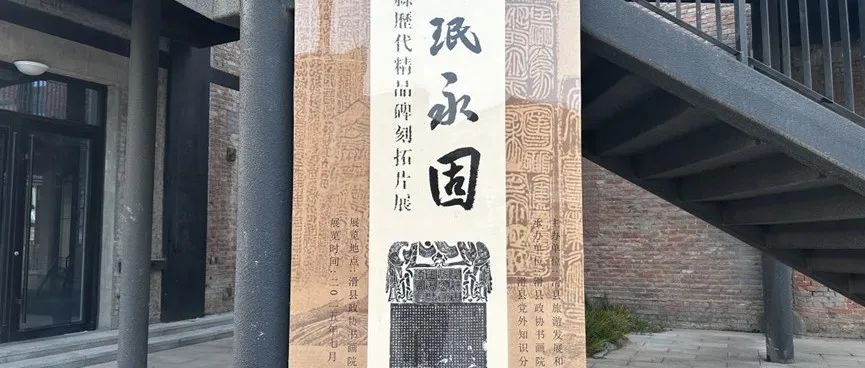 珉永固
歷代精品碑刻拓片展
主办单位：滑县旅游发展和
承办单位：滑县政协书画院
滑县党外知识分
展览地点：滑县政协书画院
展览时间：二〇二五年七月